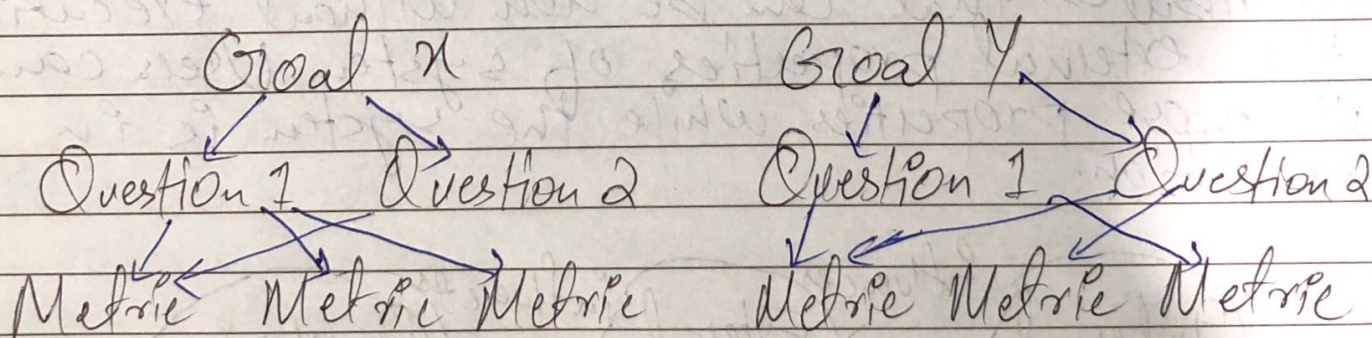 Goal x Goal Y
Question 1 Question 2 Question 1 Question 2
Metric Metric Metric Metric Metric Metric